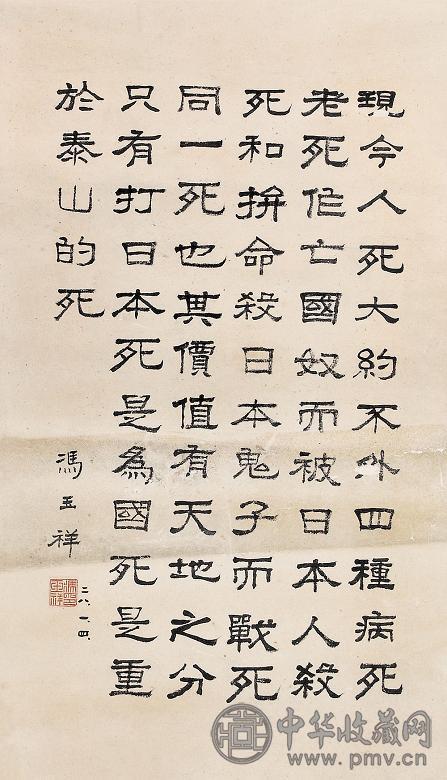 現今人死大約不外四種病死
老死作亡國奴而被日本人殺
死和拚命殺日本鬼子而戰死
同一死也其價值有天地之分
只有打日本死是為國死是重
於泰山的死
馮玉祥
二八.一.四.
中华收藏网
www.pmv.cn